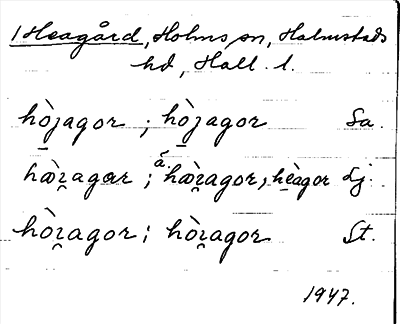 1 Heagård, Holms sn, Halmstads
hd, Hall. l.
hò̠jagor ; hò̠jagor Sa.
hæ̀ɪ̯agar ; å. hæ̀ɪ̯agor, hèagor Lj.
hòɪ̯agor ; hòɪ̯agor St.
1947.